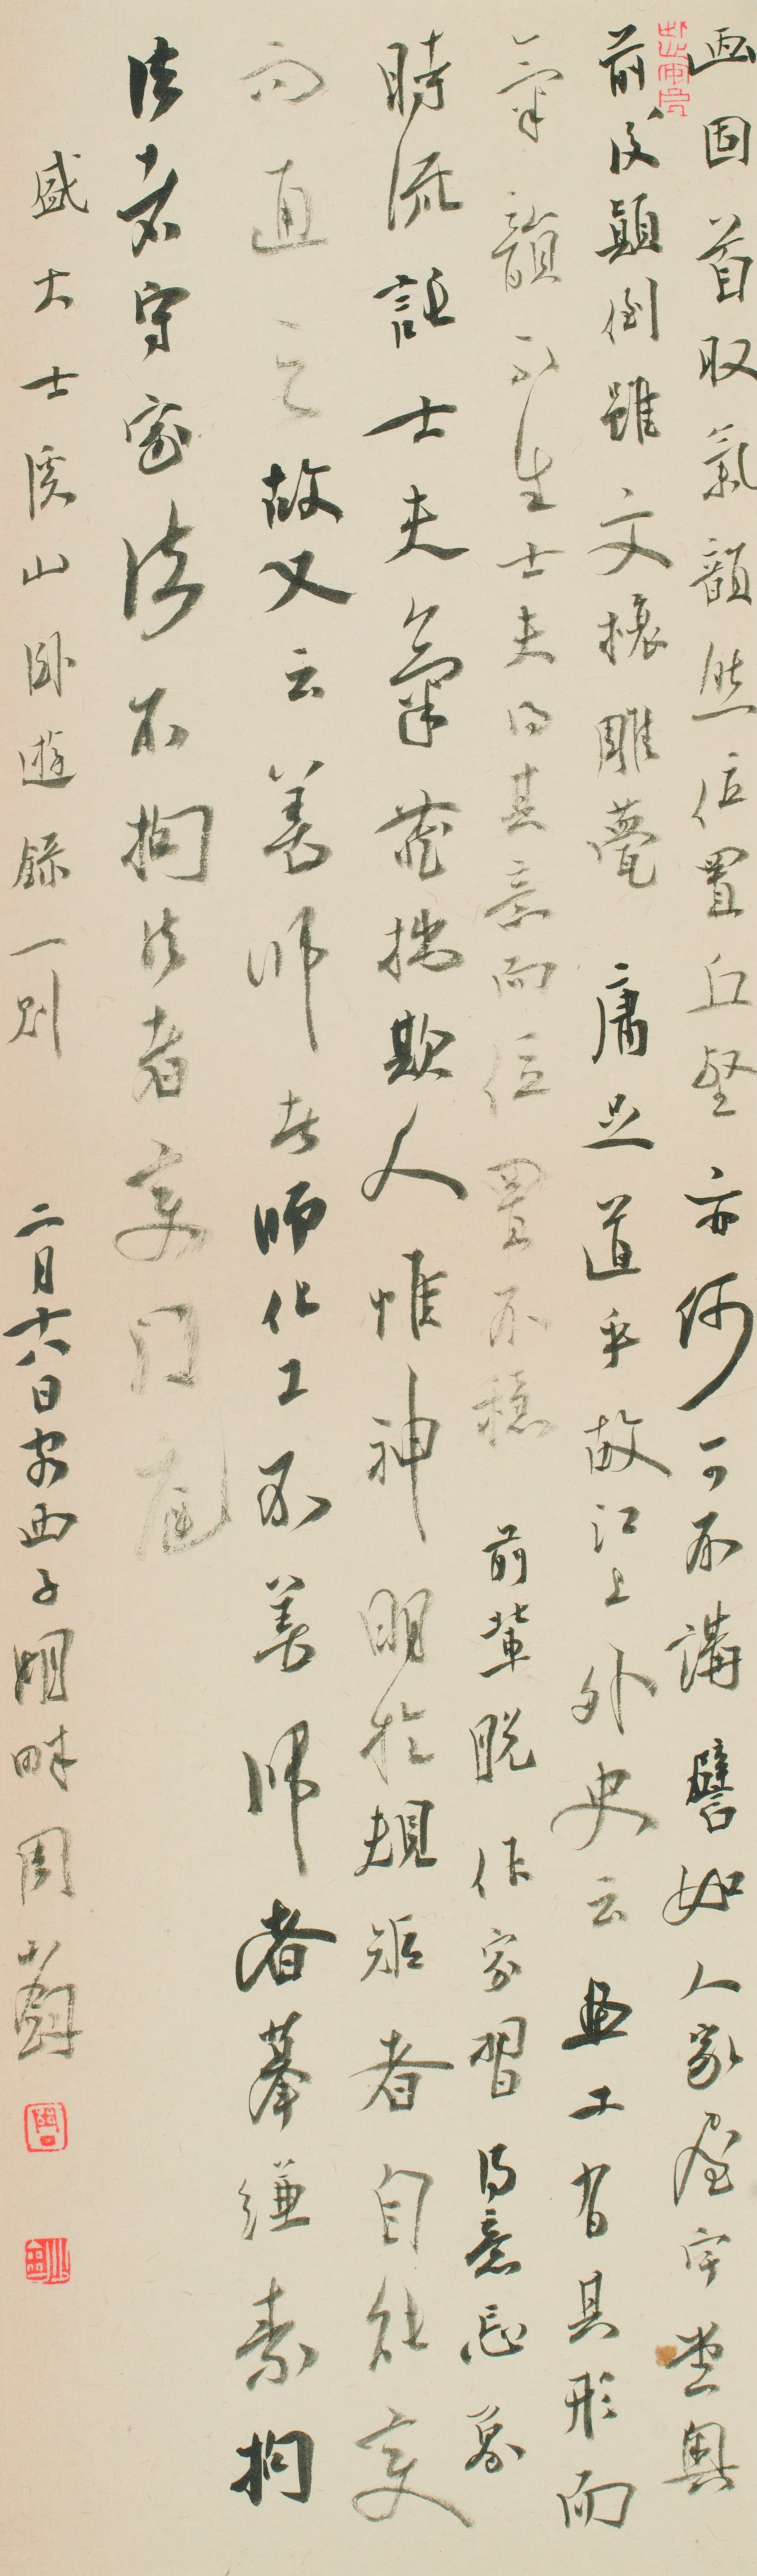 画固首取氣韻然位置丘壑亦何可不講譬如人家屋宇堂奧
前後顛倒雖文榱雕甍庸足道乎故江上外史云畫工有具形而
氣韻不生士夫得其意而位置不穩前輩脫作家習得意忘象
時流託士夫氣藏拙欺人惟神明於規矩者自能變
而通之故又云善師者師化工不善師者摹縑素拘
法者守家法不拘法者變門庭
盛大士溪山臥遊錄一則 二月十八日客西子湖畔 周